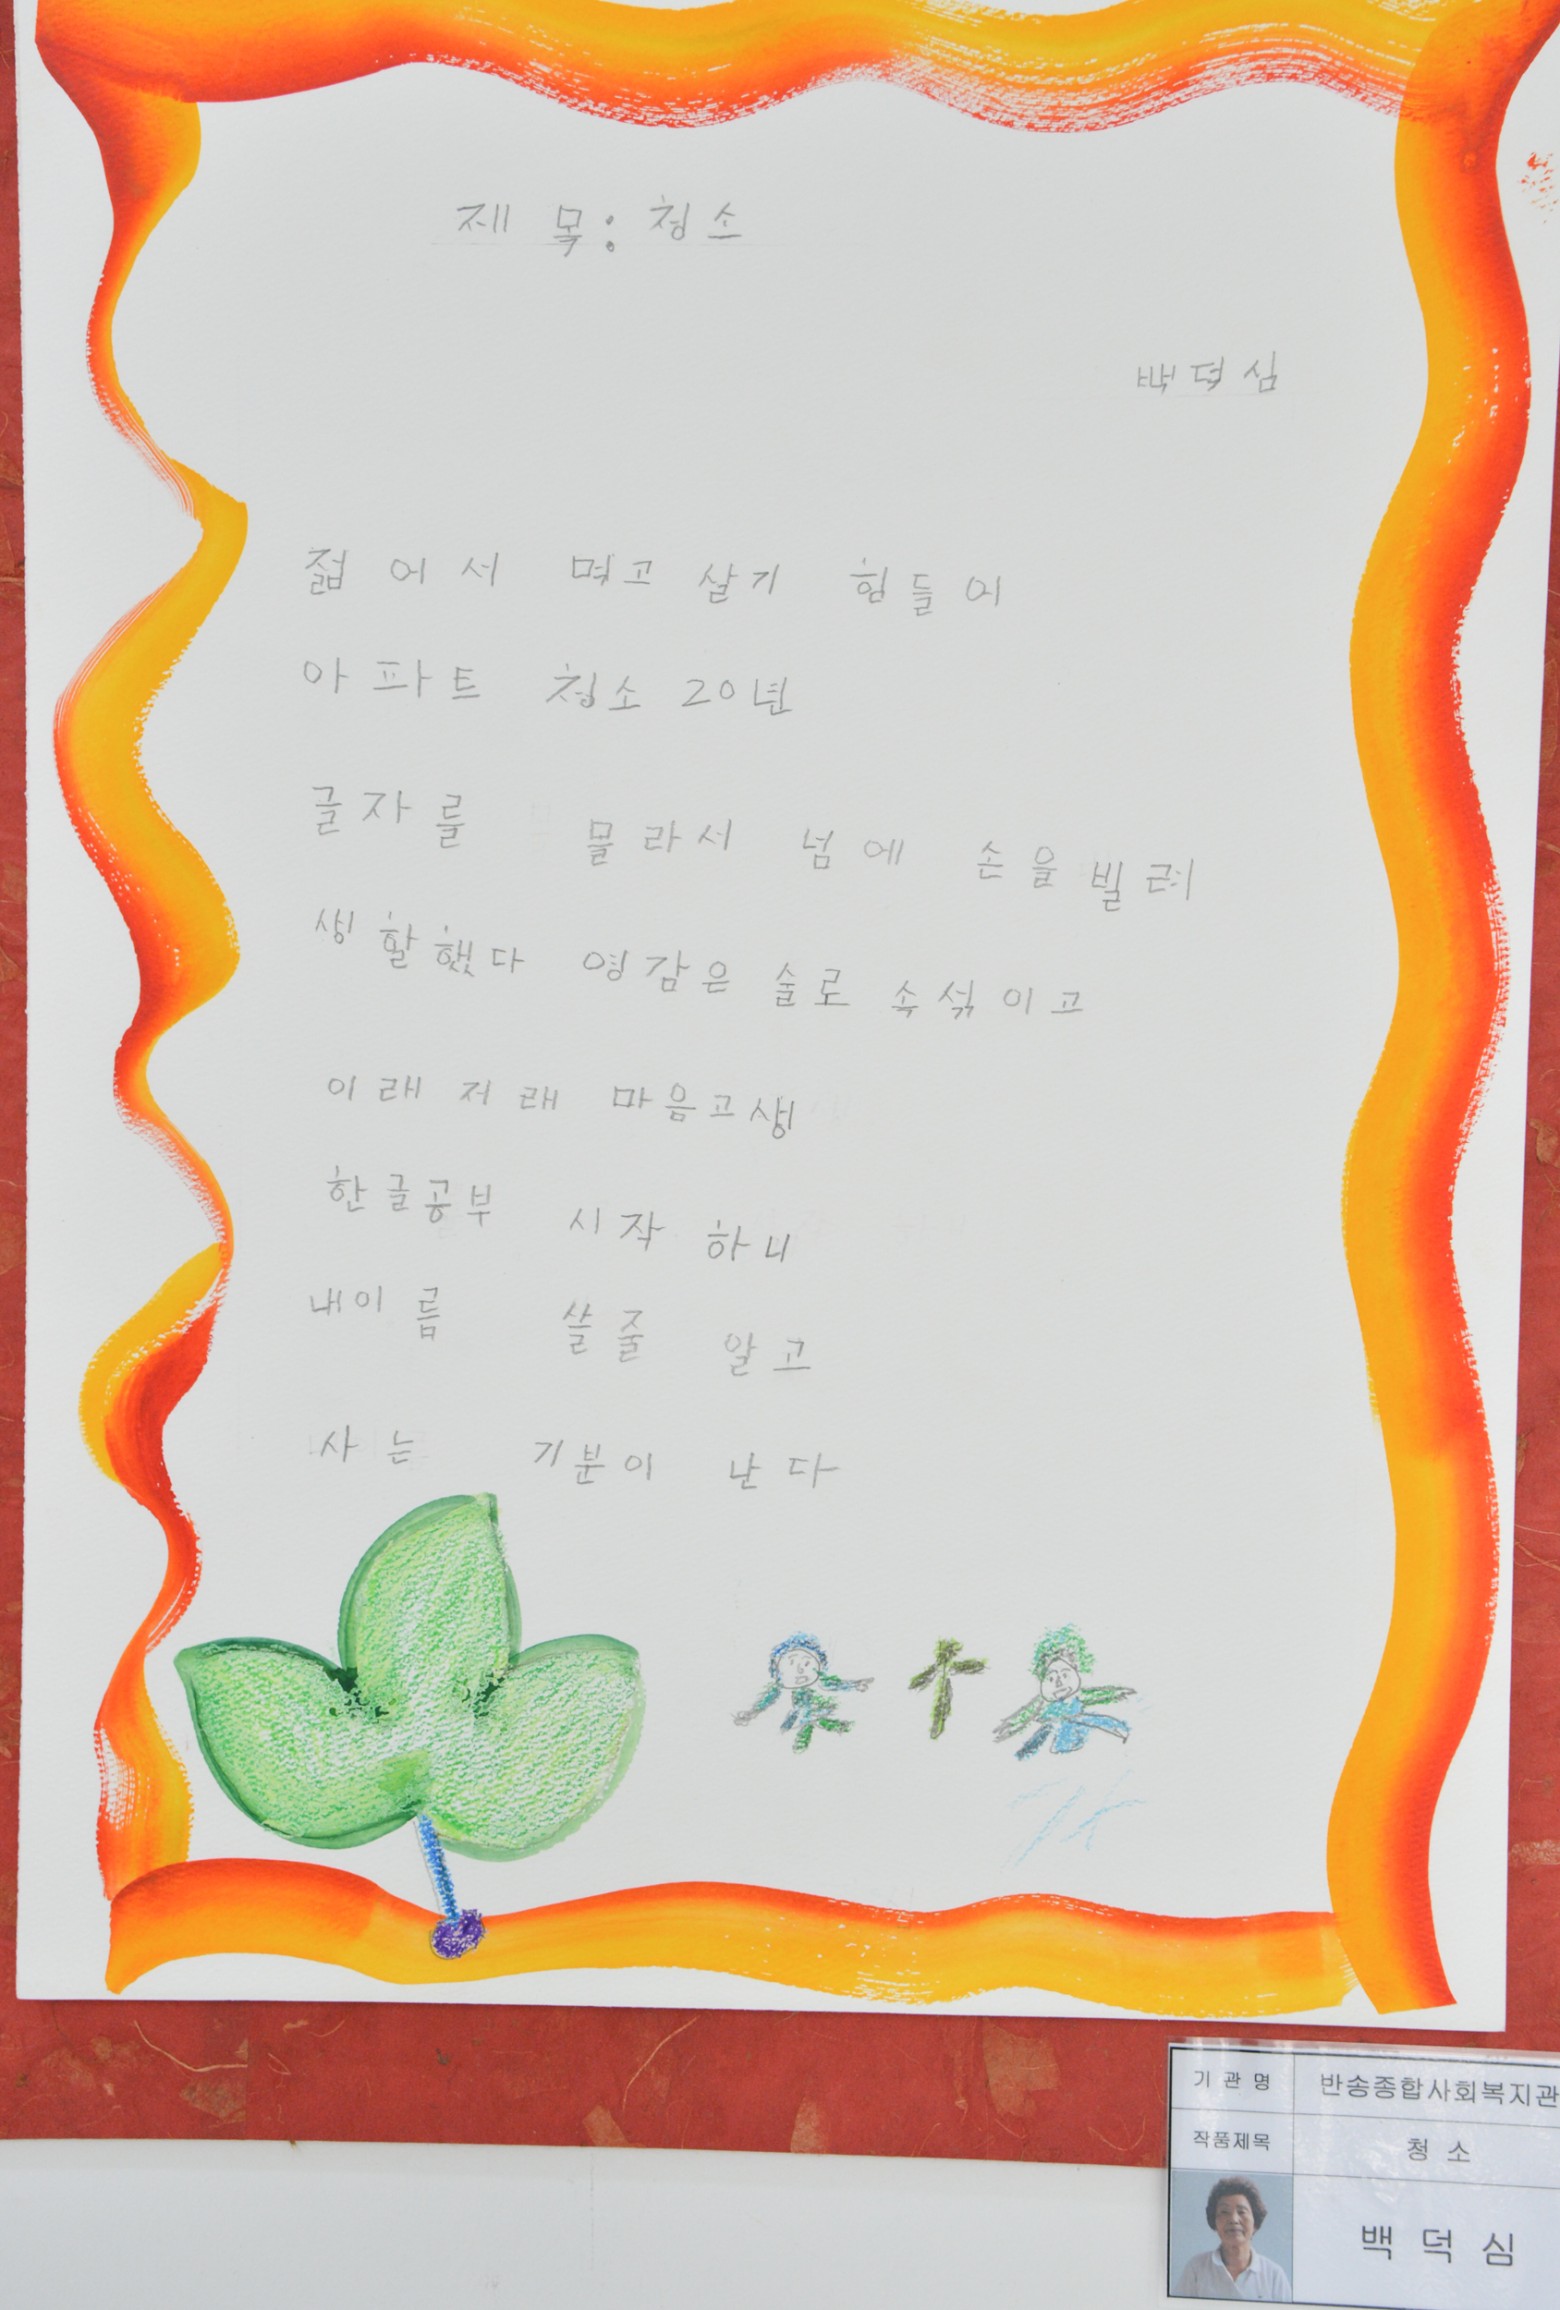 제 목: 청소
백덕심
젊어서 먹고 살기 힘들어
아파트 청소 20년
글자를 몰라서 넘에 손을 빌려
생활했다 영감은 술로 속섞이고
이래저래 마음고생
한글공부 시작하니
내이름 쓸줄 알고
사는 기분이 난다
기관명 반송종합사회복지관
작품제목 청소
백덕심